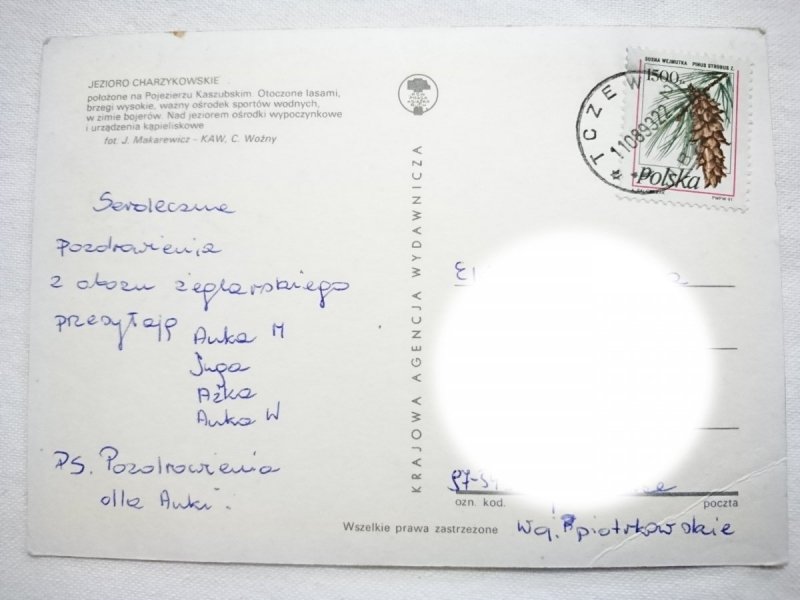 JEZIORO CHARZYKOWSKIE
położone na Pojezierzu Kaszubskim. Otoczone lasami,
brzegi wysokie, ważny ośrodek sportów wodnych,
w zimie bojerów. Nad jeziorem ośrodki wypoczynkowe
i urządzenia kąpieliskowe
fot. J. Makarewicz - KAW, C. Woźny
Serdeczne
pozdrowienia
z obozu żeglarskiego
przesyłają
Anka M
Inga
Aśka
Anka W
PS. Pozdrowienia
dla Anki.
KRAJOWA AGENCJA WYDAWNICZA
SOSNA WEJMUTKA PINUS STROBUS
1500
Polska
TCZEW
ozn. kod. poczta
woj. piotrkowskie
Wszelkie prawa zastrzeżone